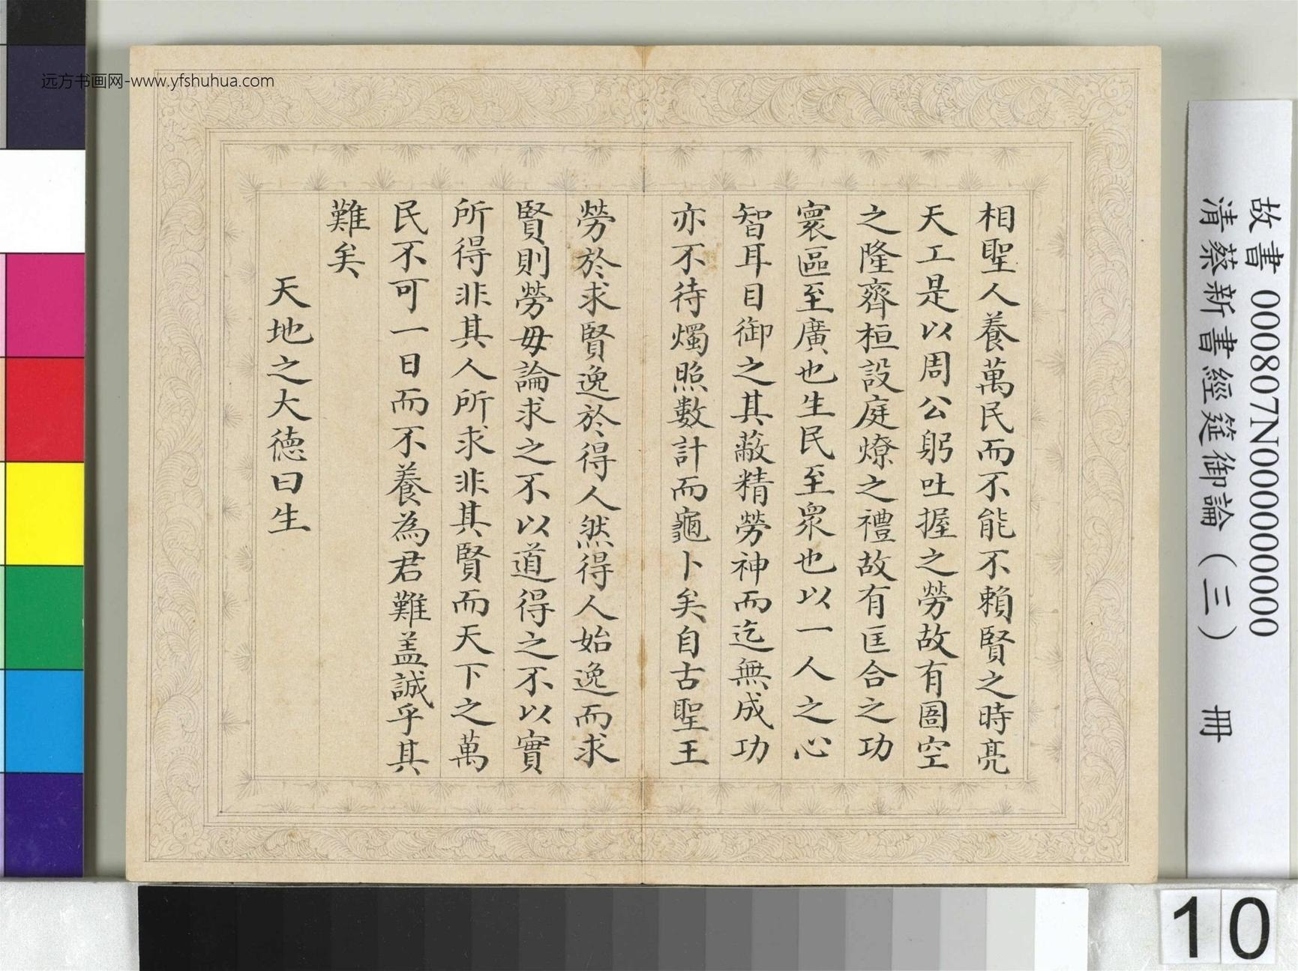 远方书画网-www.yfshuhua.com
相聖人養萬民而不能不賴賢之時亮
天工是以周公躬吐握之勞故有圄空
之隆齊桓設庭燎之禮故有匡合之功
寰區至廣也生民至衆也以一人之心
智耳目御之其蔽精勞神而迄無成功
亦不待燭照数計而龜卜矣自古聖王
勞於求賢逸於得人然得人始逸而求
賢則勞毋論求之不以道得之不以實
所得非其人所求非其賢而天下之萬
民不可一日而不養為君難盖誠乎其
難矣
天地之大德曰生
故書000807N000000000
清蔡新書經筵御論（三） 冊
10